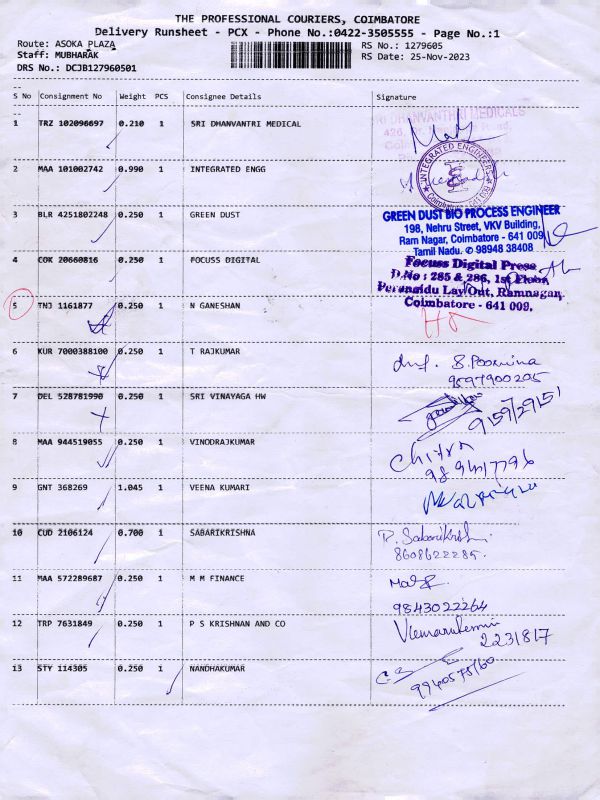 THE PROFESSIONAL COURIERS, COIMBATORE
Delivery Runsheet - PCX - Phone No.:0422-3505555 - Page No.:1
Route: ASOKA PLAZA
RS No.: 1279605
Staff: MUBHARAK
RS Date: 25-Nov-2023
DRS No.: DCJB127960501
S No Consignment No Weight PCS Consignee Details Signature
1 TRZ 102096697 0.210 1 SRI DHANVANTRI MEDICAL
SRI DHANVANTHRI MEDICALS
2 MAA 101002742 0.990 1 INTEGRATED ENGG
INTEGRATED ENGINEERS
Coimbatore - 641 028
3 BLR 4251802248 0.250 1 GREEN DUST
GREEN DUST BIO PROCESS ENGINEER
198, Nehru Street, VKV Building,
Ram Nagar, Coimbatore - 641 009,
Tamil Nadu. ✆ 98948 38408
4 COK 20660816 0.250 1 FOCUSS DIGITAL
Focuss Digital Press
D.No : 285 & 286, 1st Floor,
Perumaidu Lay Out, Ramnagar,
Coimbatore - 641 009.
5 TNJ 1161877 0.250 1 N GANESHAN
6 KUR 7000388100 0.250 1 T RAJKUMAR
B.Poornina
9597900205
7 DEL 528781990 0.250 1 SRI VINAYAGA HW
9159729151
8 MAA 944519055 0.250 1 VINODRAJKUMAR
Chitra
9 GNT 368269 1.045 1 VEENA KUMARI
10 CUD 2106124 0.700 1 SABARIKRISHNA
8608622285.
11 MAA 572289687 0.250 1 M M FINANCE
9843022264
12 TRP 7631849 0.250 1 P S KRISHNAN AND CO
2231817
13 STY 114305 0.250 1 NANDHAKUMAR
9940575760